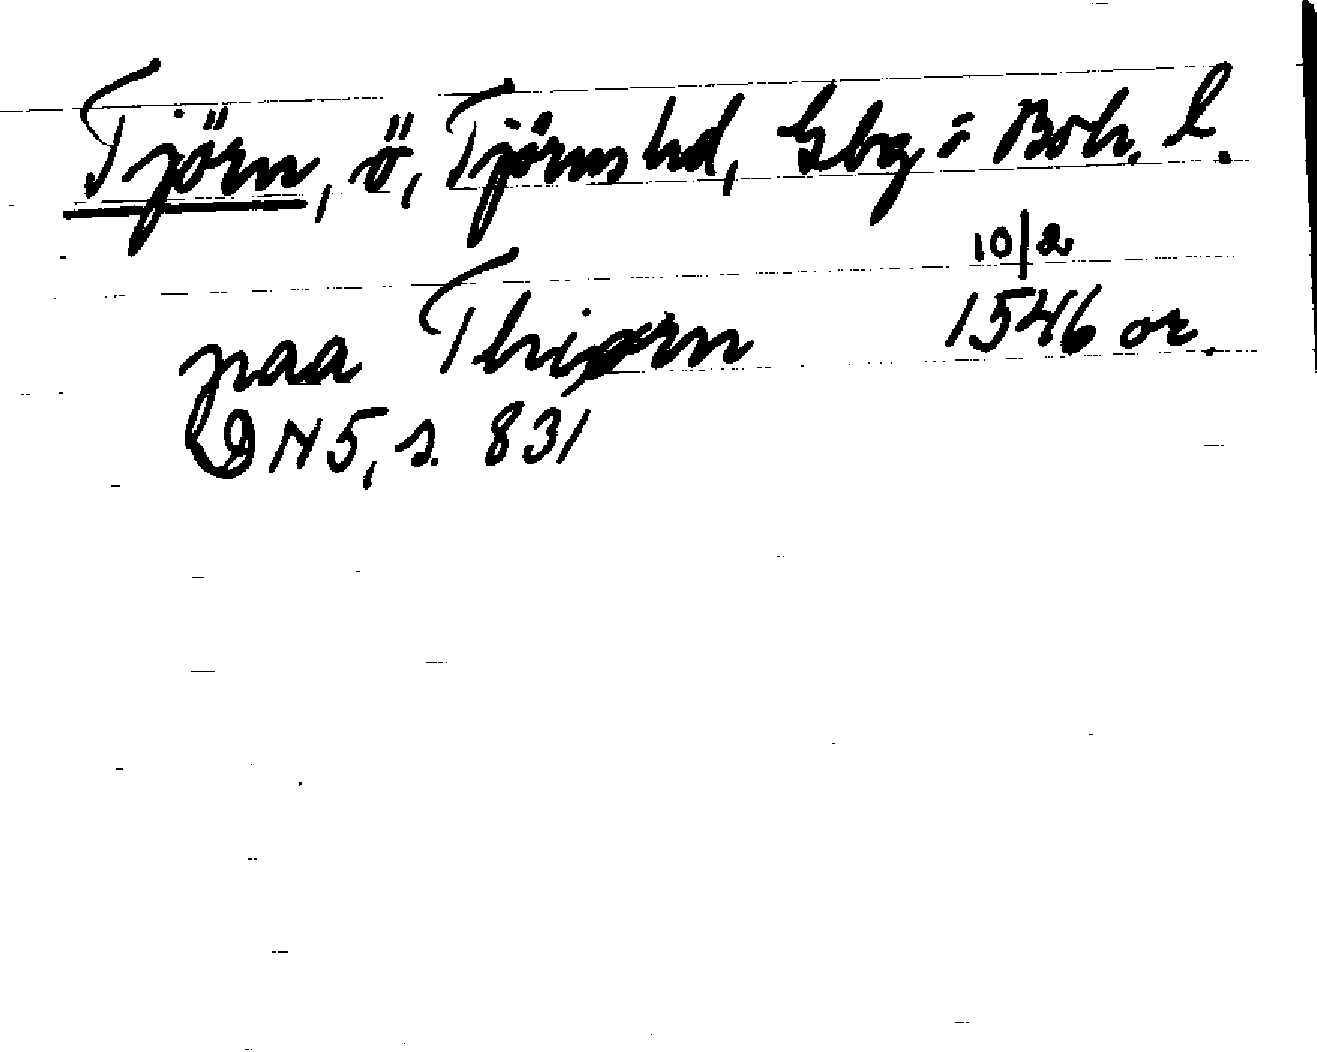 Tjörn, ö, Tjörns hd, Gbg = Boh. l.
10/2
paa Thiørn 1546 or.
DN 5, s. 831